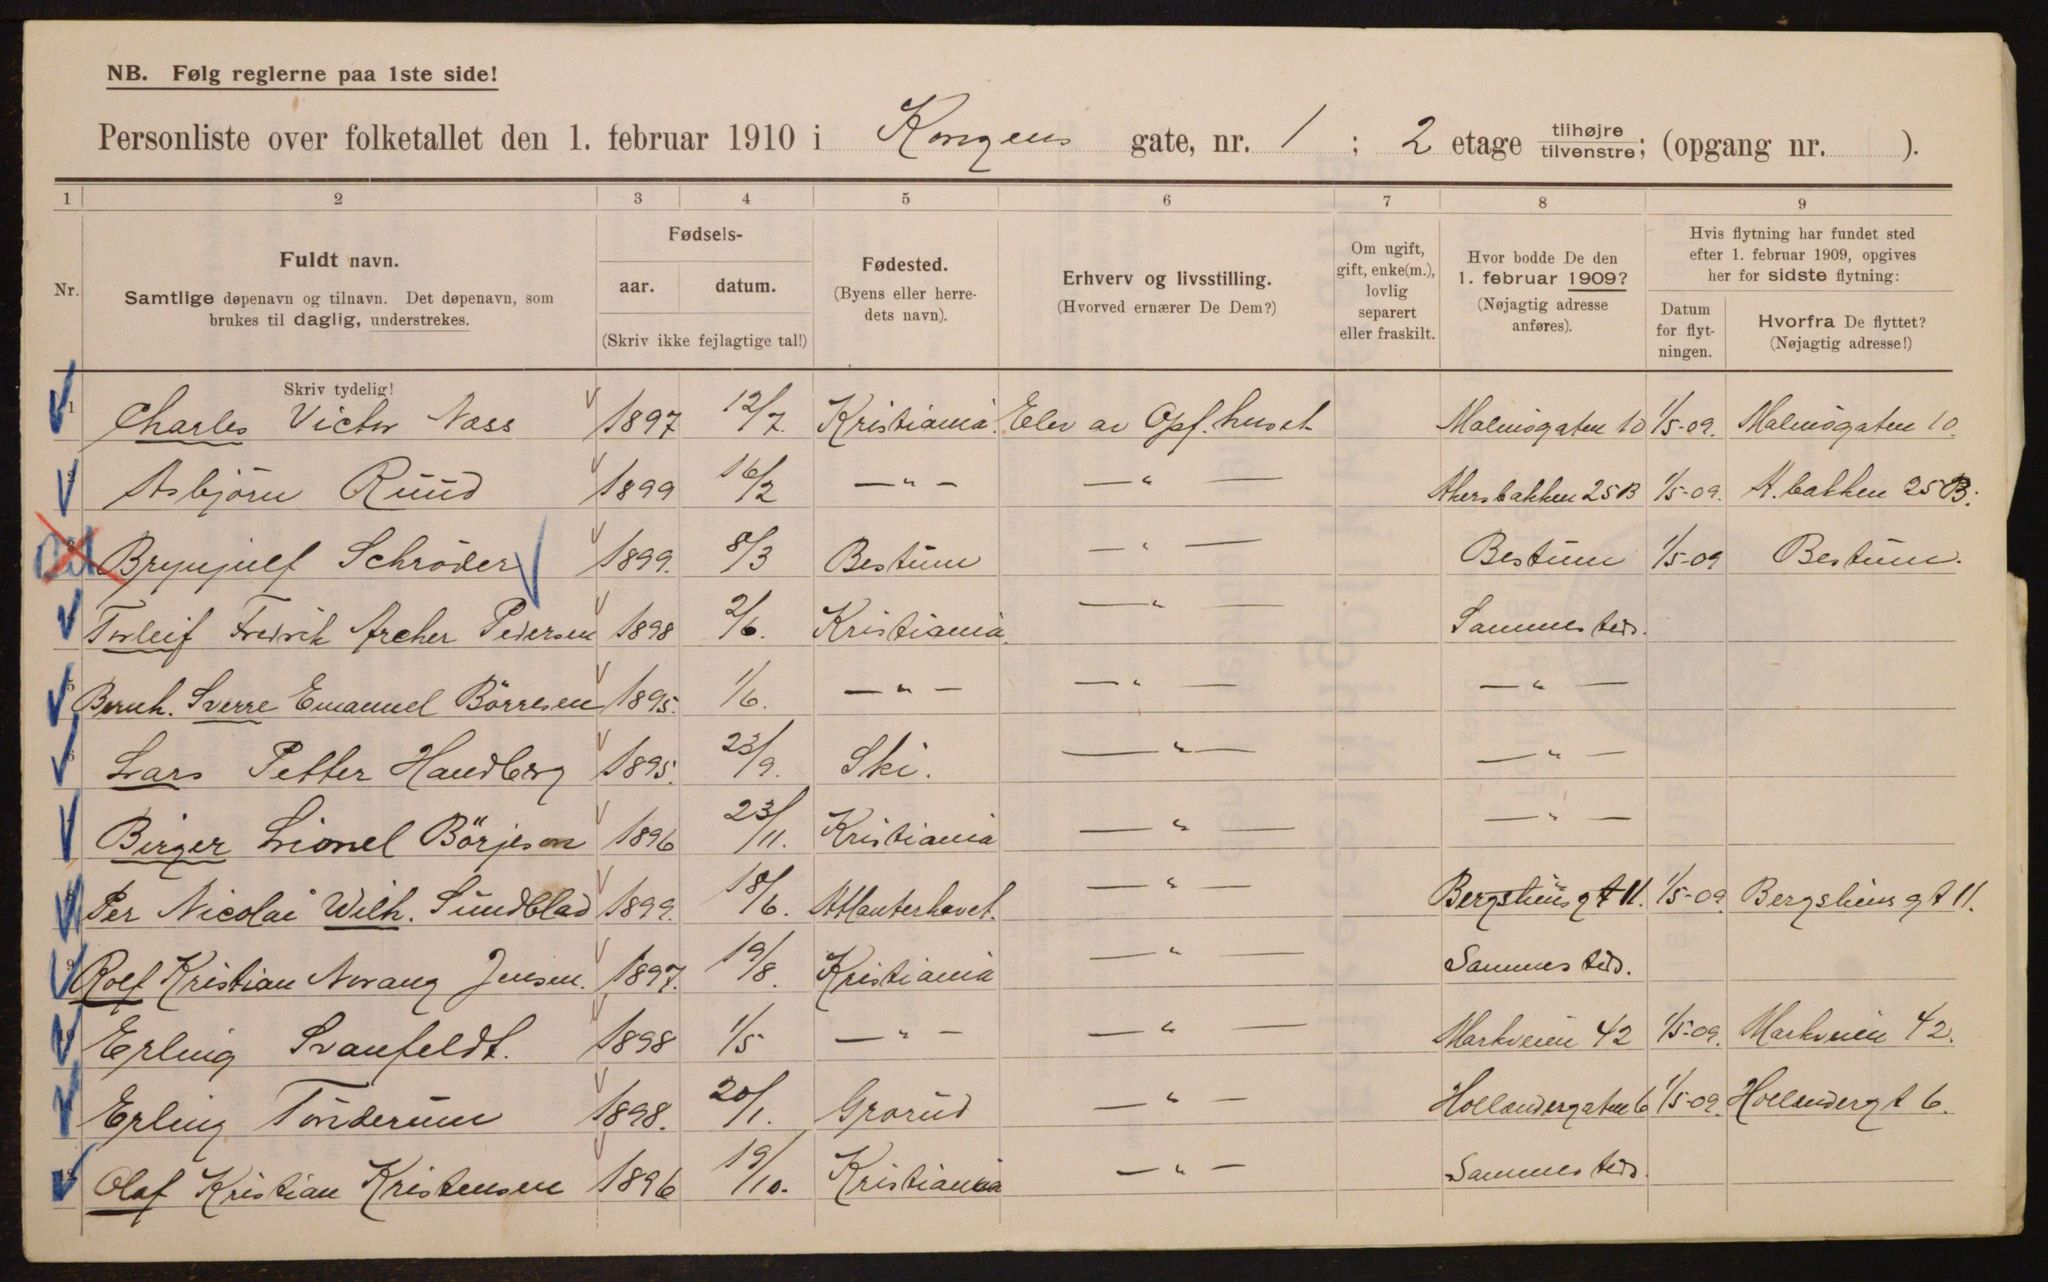 NB. Følg reglerne paa 1ste side!
Personliste over folketallet den 1. februar 1910 i Kongens gate, nr. 1 ; 2 etage tilhøjre tilvenstre; (opgang nr. ).
1 2 3 4 5 6 7 8 9
Nr.
Fuldt navn.
Samtlige døpenavn og tilnavn. Det døpenavn, som
brukes til daglig, understrekes.
Skriv tydelig!
Fødsels-
aar. datum.
(Skriv ikke fejlagtige tal!)
Fødested.
(Byens eller herre-
dets navn).
Erhverv og livsstilling.
(Hvorved ernærer De Dem?)
Om ugift,
gift, enke(m.),
lovlig
separert
eller fraskilt.
Hvor bodde De den
1. februar 1909?
(Nøjagtig adresse
anføres).
Hvis flytning har fundet sted
efter 1. februar 1909, opgives
her for sidste flytning:
Datum
for flyt-
ningen.
Hvorfra De flyttet?
(Nøjagtig adresse!)
1 Charles Victor Nass 1897 12/7 Kristiania. Elev av Opf. huset Malmøgaten 10 1/5-09. Malmøgaten 10.
Asbjørn Ruud 1899 16/2 — " — — " — Akersbakken 25B 1/5-09. A. bakken 25B.
Brynjulf Schrøder 1899. 8/3 Bestum — " — Bestum 1/5-09 Bestum.
Torleif Fredrik Archer Pedersen 1898 2/6. Kristiania. — " — Sammesteds.
5 Bernh. Sverre Emanuel Börresen 1895. 1/6. — " — — " — — " —
Lars Petter Handberg 1895. 23/9. Ski. — " — — " —
Birger Lionel Börjeson 1896 23/11. Kristiania — " — — " —
Per Nicolai Wilh. Sundblad 1899. 18/6. Atlanterhavet. — " — Bergsliens gt 11. 1/5-09. Bergsliens gt 11.
9 Rolf Kristian Norang Jensen. 1897. 19/8. Kristiania — " — Sammesteds.
Erling Svanfeldt. 1898 1/5 — " — — " — Markveien 42 1/5-09. Markveien 42.
Erling Tonderum 1898. 20/1. Grorud — " — Hollendergaten 6 1/5-09. Hollendergt 6.
Olaf Kristian Kristensen 1896 19/10. Kristiania — " — Sammesteds.